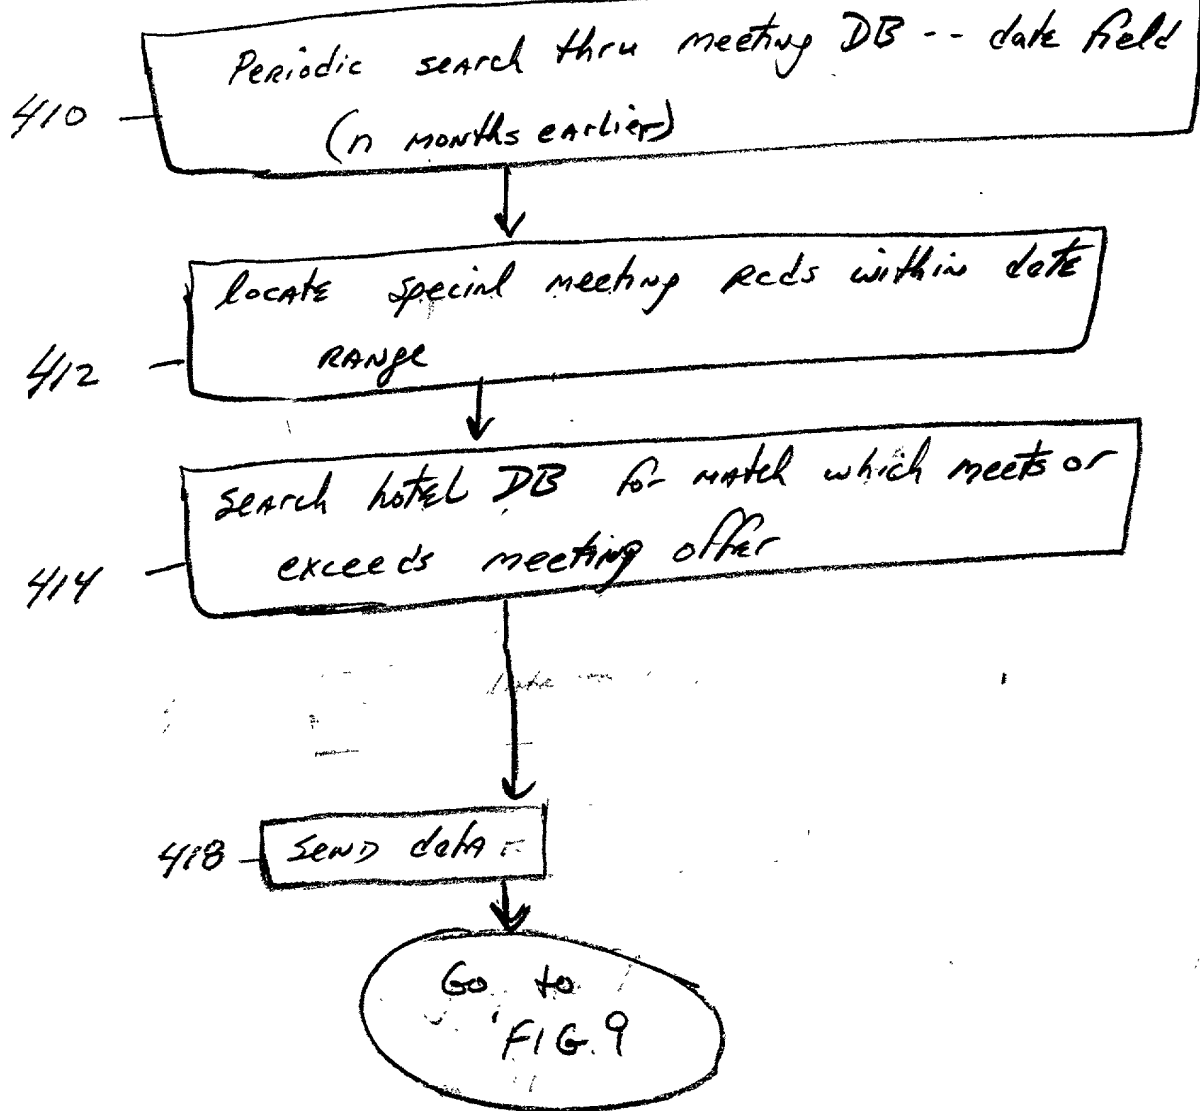 Periodic search thru meeting DB -- date field
410
(n months earlier)
locate special meeting rcds within date
412
range
search hotel DB for match which meets or
414
exceeds meeting offer
418
send data
Go to
FIG. 9